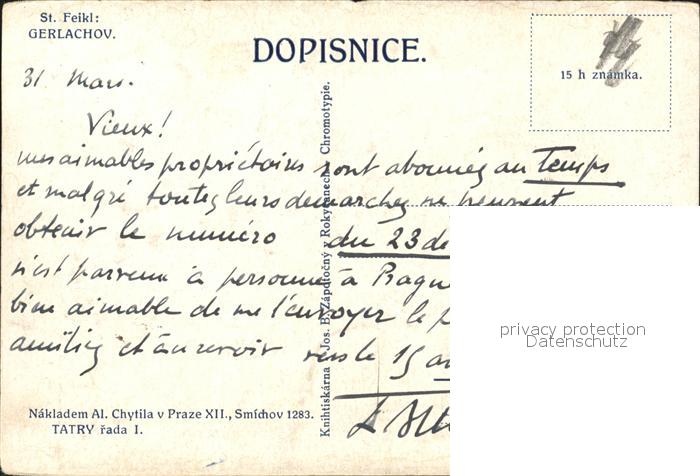 St. Feikl:
GERLACHOV.
DOPISNICE.
15 h známka.
31 Mars.
Vieux!
mes aimables propriétaires sont abonnés au Temps
et malgré toutes leurs démarches ne peuvent
obtenir le numéro du 23 de
n'est parvenu à personne à Prague
bien aimable de me l'envoyer le p
amitiés et au revoir vers le 15 av
Knihtiskárna Jos. B. Zápotočný v Rokycanech. Chromotypie.
Nákladem Al. Chytila v Praze XII., Smíchov 1283.
TATRY řada I.
privacy protection
Datenschutz